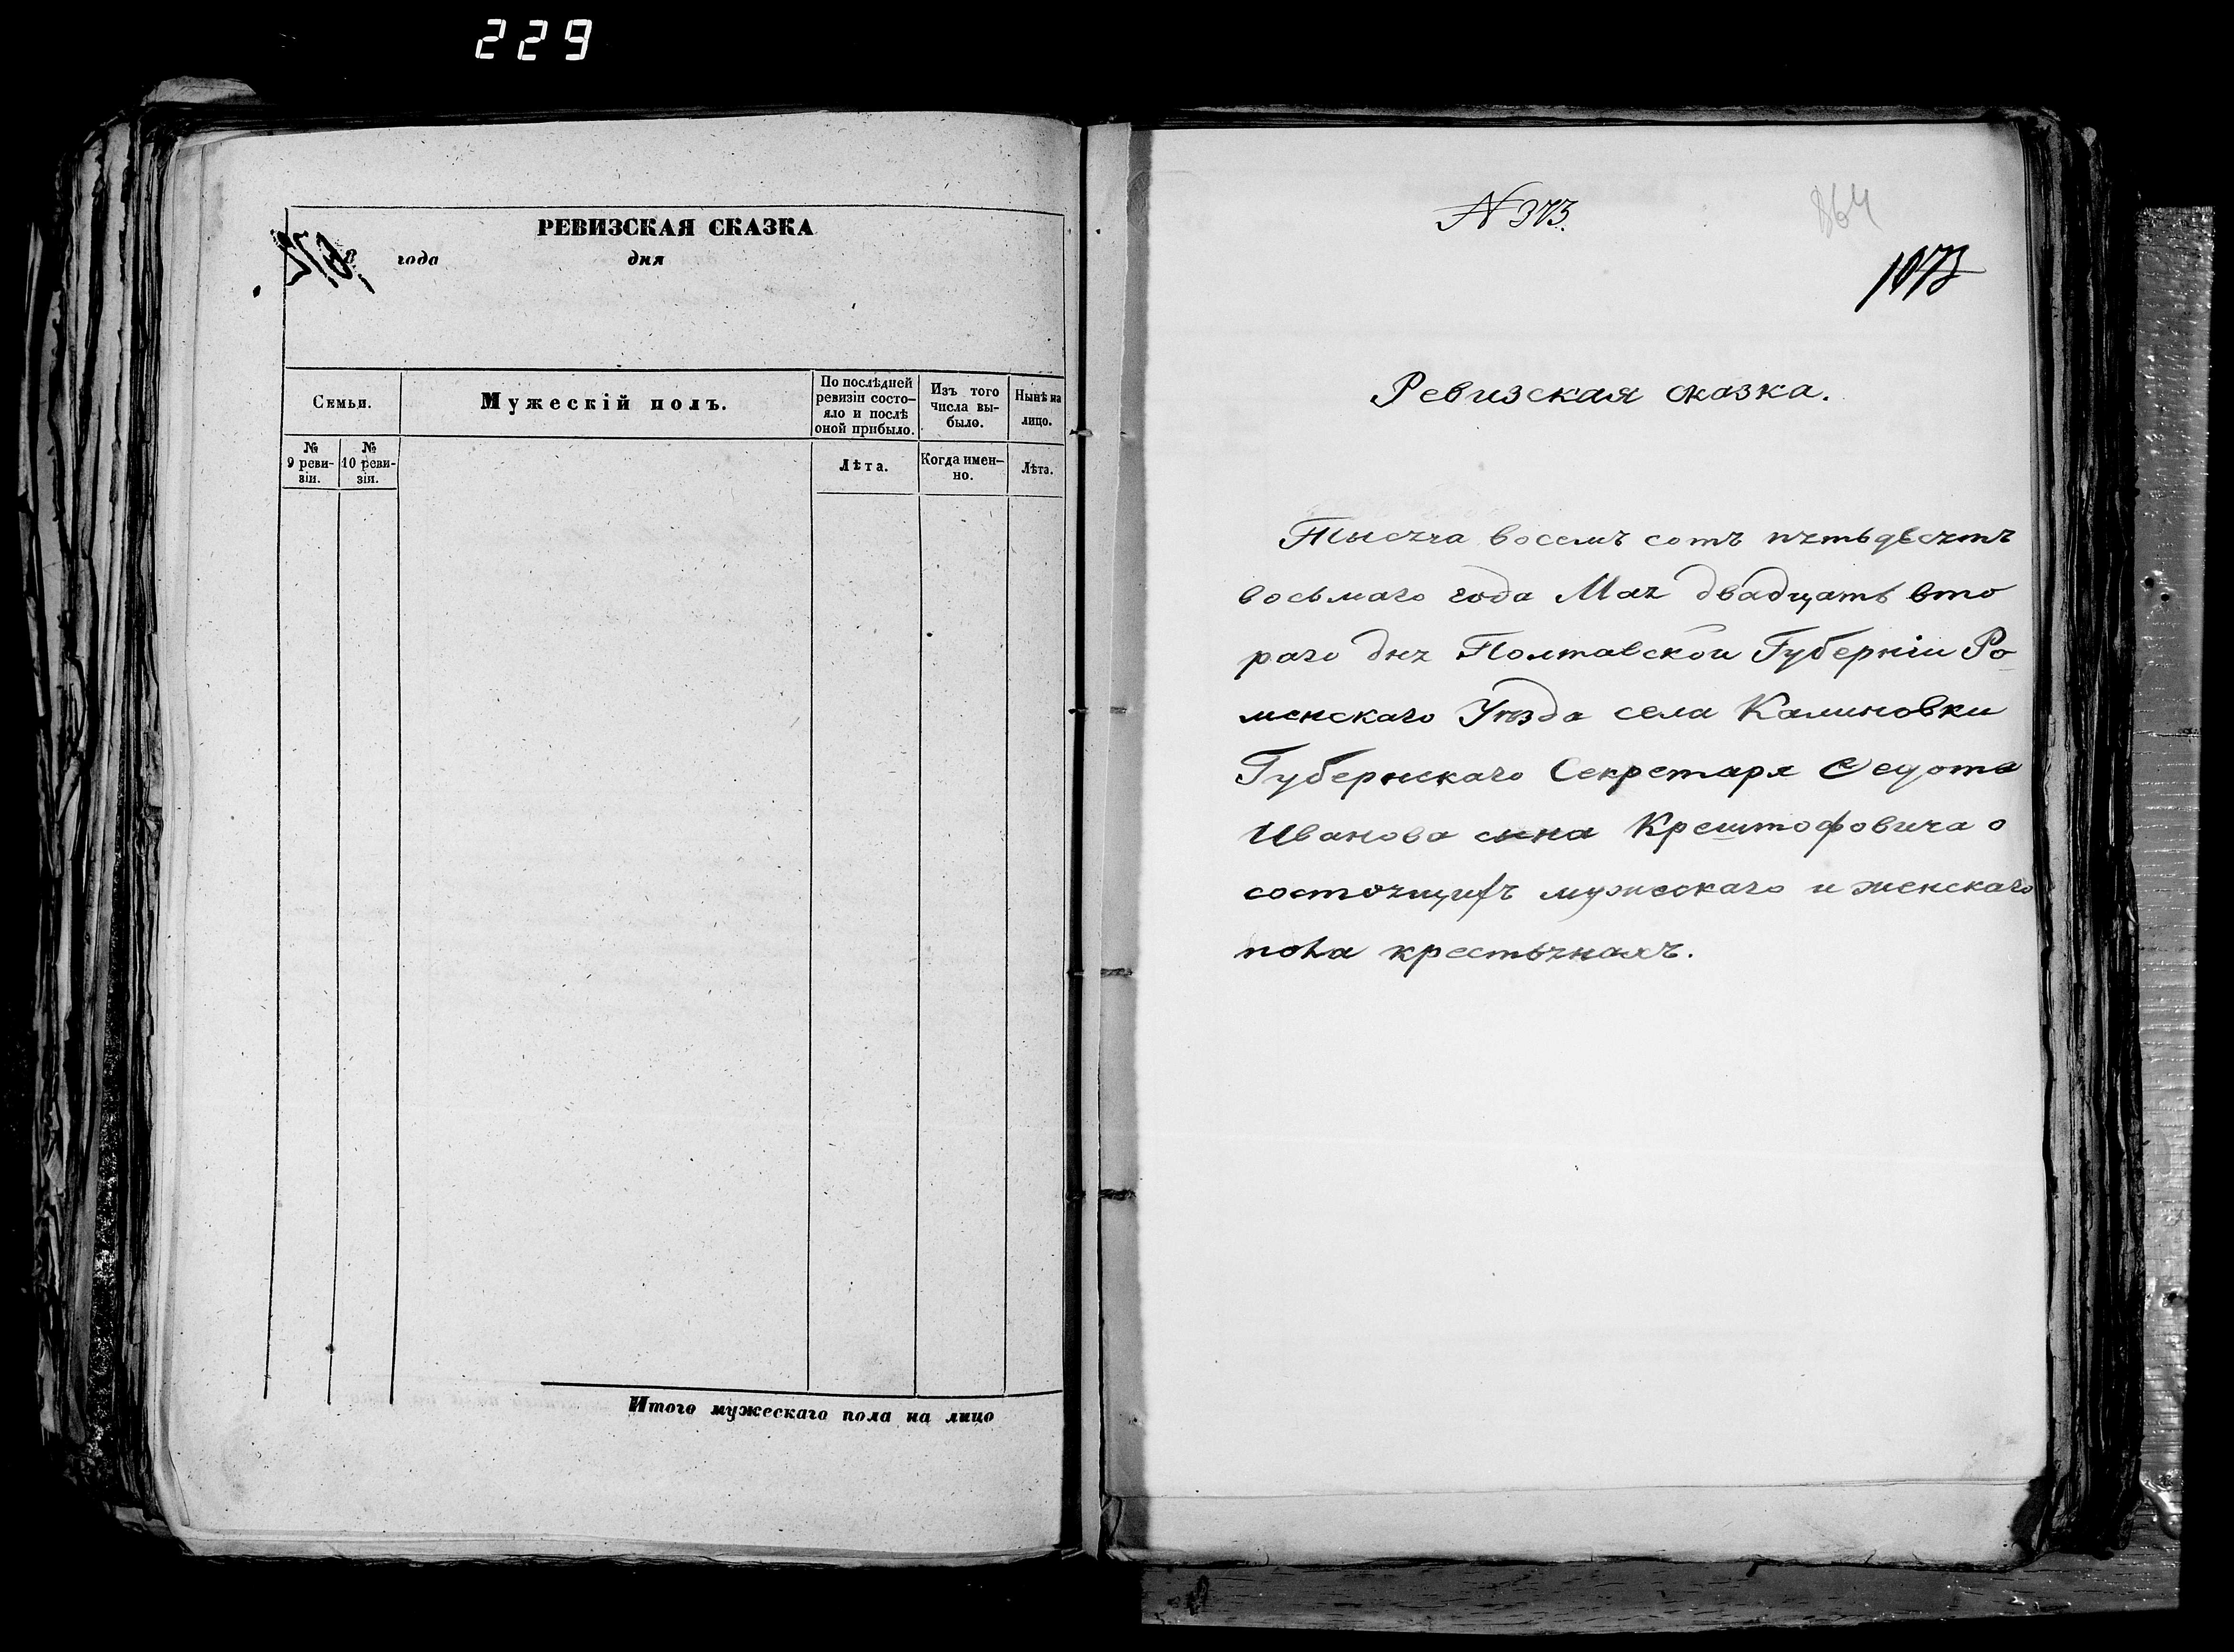 229
РЕВИЗСКАЯ СКАЗКА
года дня
Семьи.
Мужескій полъ.
По послѣдней
ревизіи состо-
яло и послѣ
оной прибыло.
Изъ того
числа вы-
было.
Нынѣ на
лицо.
№
9 реви-
зіи.
№
10 реви-
зіи.
Лѣта.
Когда имен-
но.
Лѣта.
Итого мужескаго пола на лицо
N 373.
864
1073
Ревизская сказка.
Тысяча восемъ сотъ пятьдесятъ
восьмаго года Мая двадцать вто
раго дня Полтавской Губерніи Ро-
менскаго Уѣзда села Калиновки
Губернскаго Секретаря Федота
Иванова сына Крештофовича о
состоящихъ мужескаго и женскаго
пола крестьянахъ.